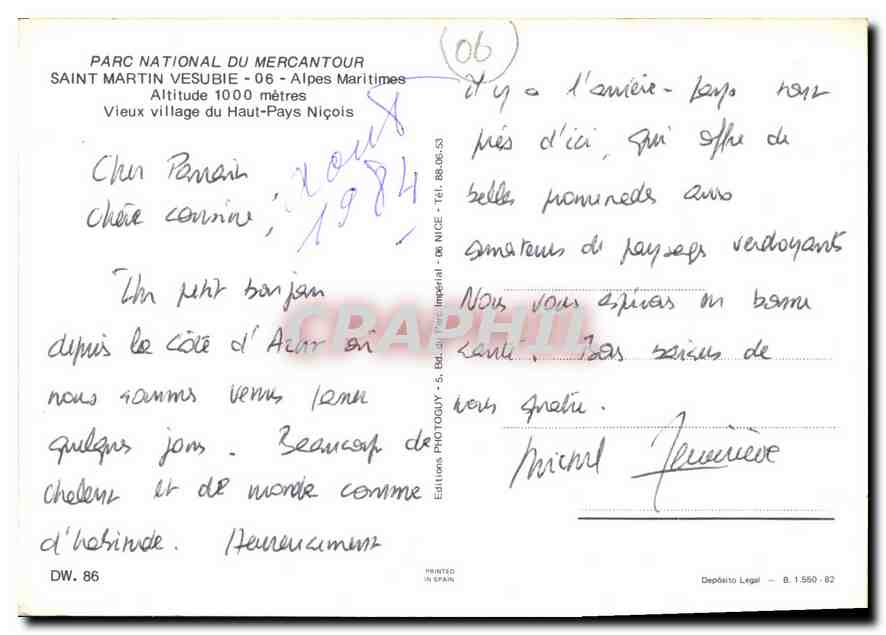 PARC NATIONAL DU MERCANTOUR
SAINT MARTIN VESUBIE - 06 - Alpes Maritimes
Altitude 1000 mètres
Vieux village du Haut-Pays Niçois
06
Août
1984
Cher Parrain
chère cousine,
Un petit bonjour
depuis la côte d'Azur où
nous sommes venus passer
quelques jours. Beaucoup de
chaleur et de monde comme
d'habitude. Heureusement
DW. 86
Editions PHOTOGUY - 5, Bd. du Parc Impérial - 06 NICE - Tél. 88-06-53
PRINTED
IN SPAIN
il y a l'arrière-pays tout
près d'ici, qui offre de
belles promenades aux
amateurs de paysages verdoyants
Nous vous espérons en bonne
santé. Bons baisers de
nous quatre.
Michel Geneviève
Depósito Legal — B. 1.550 - 82
CRAPHIL